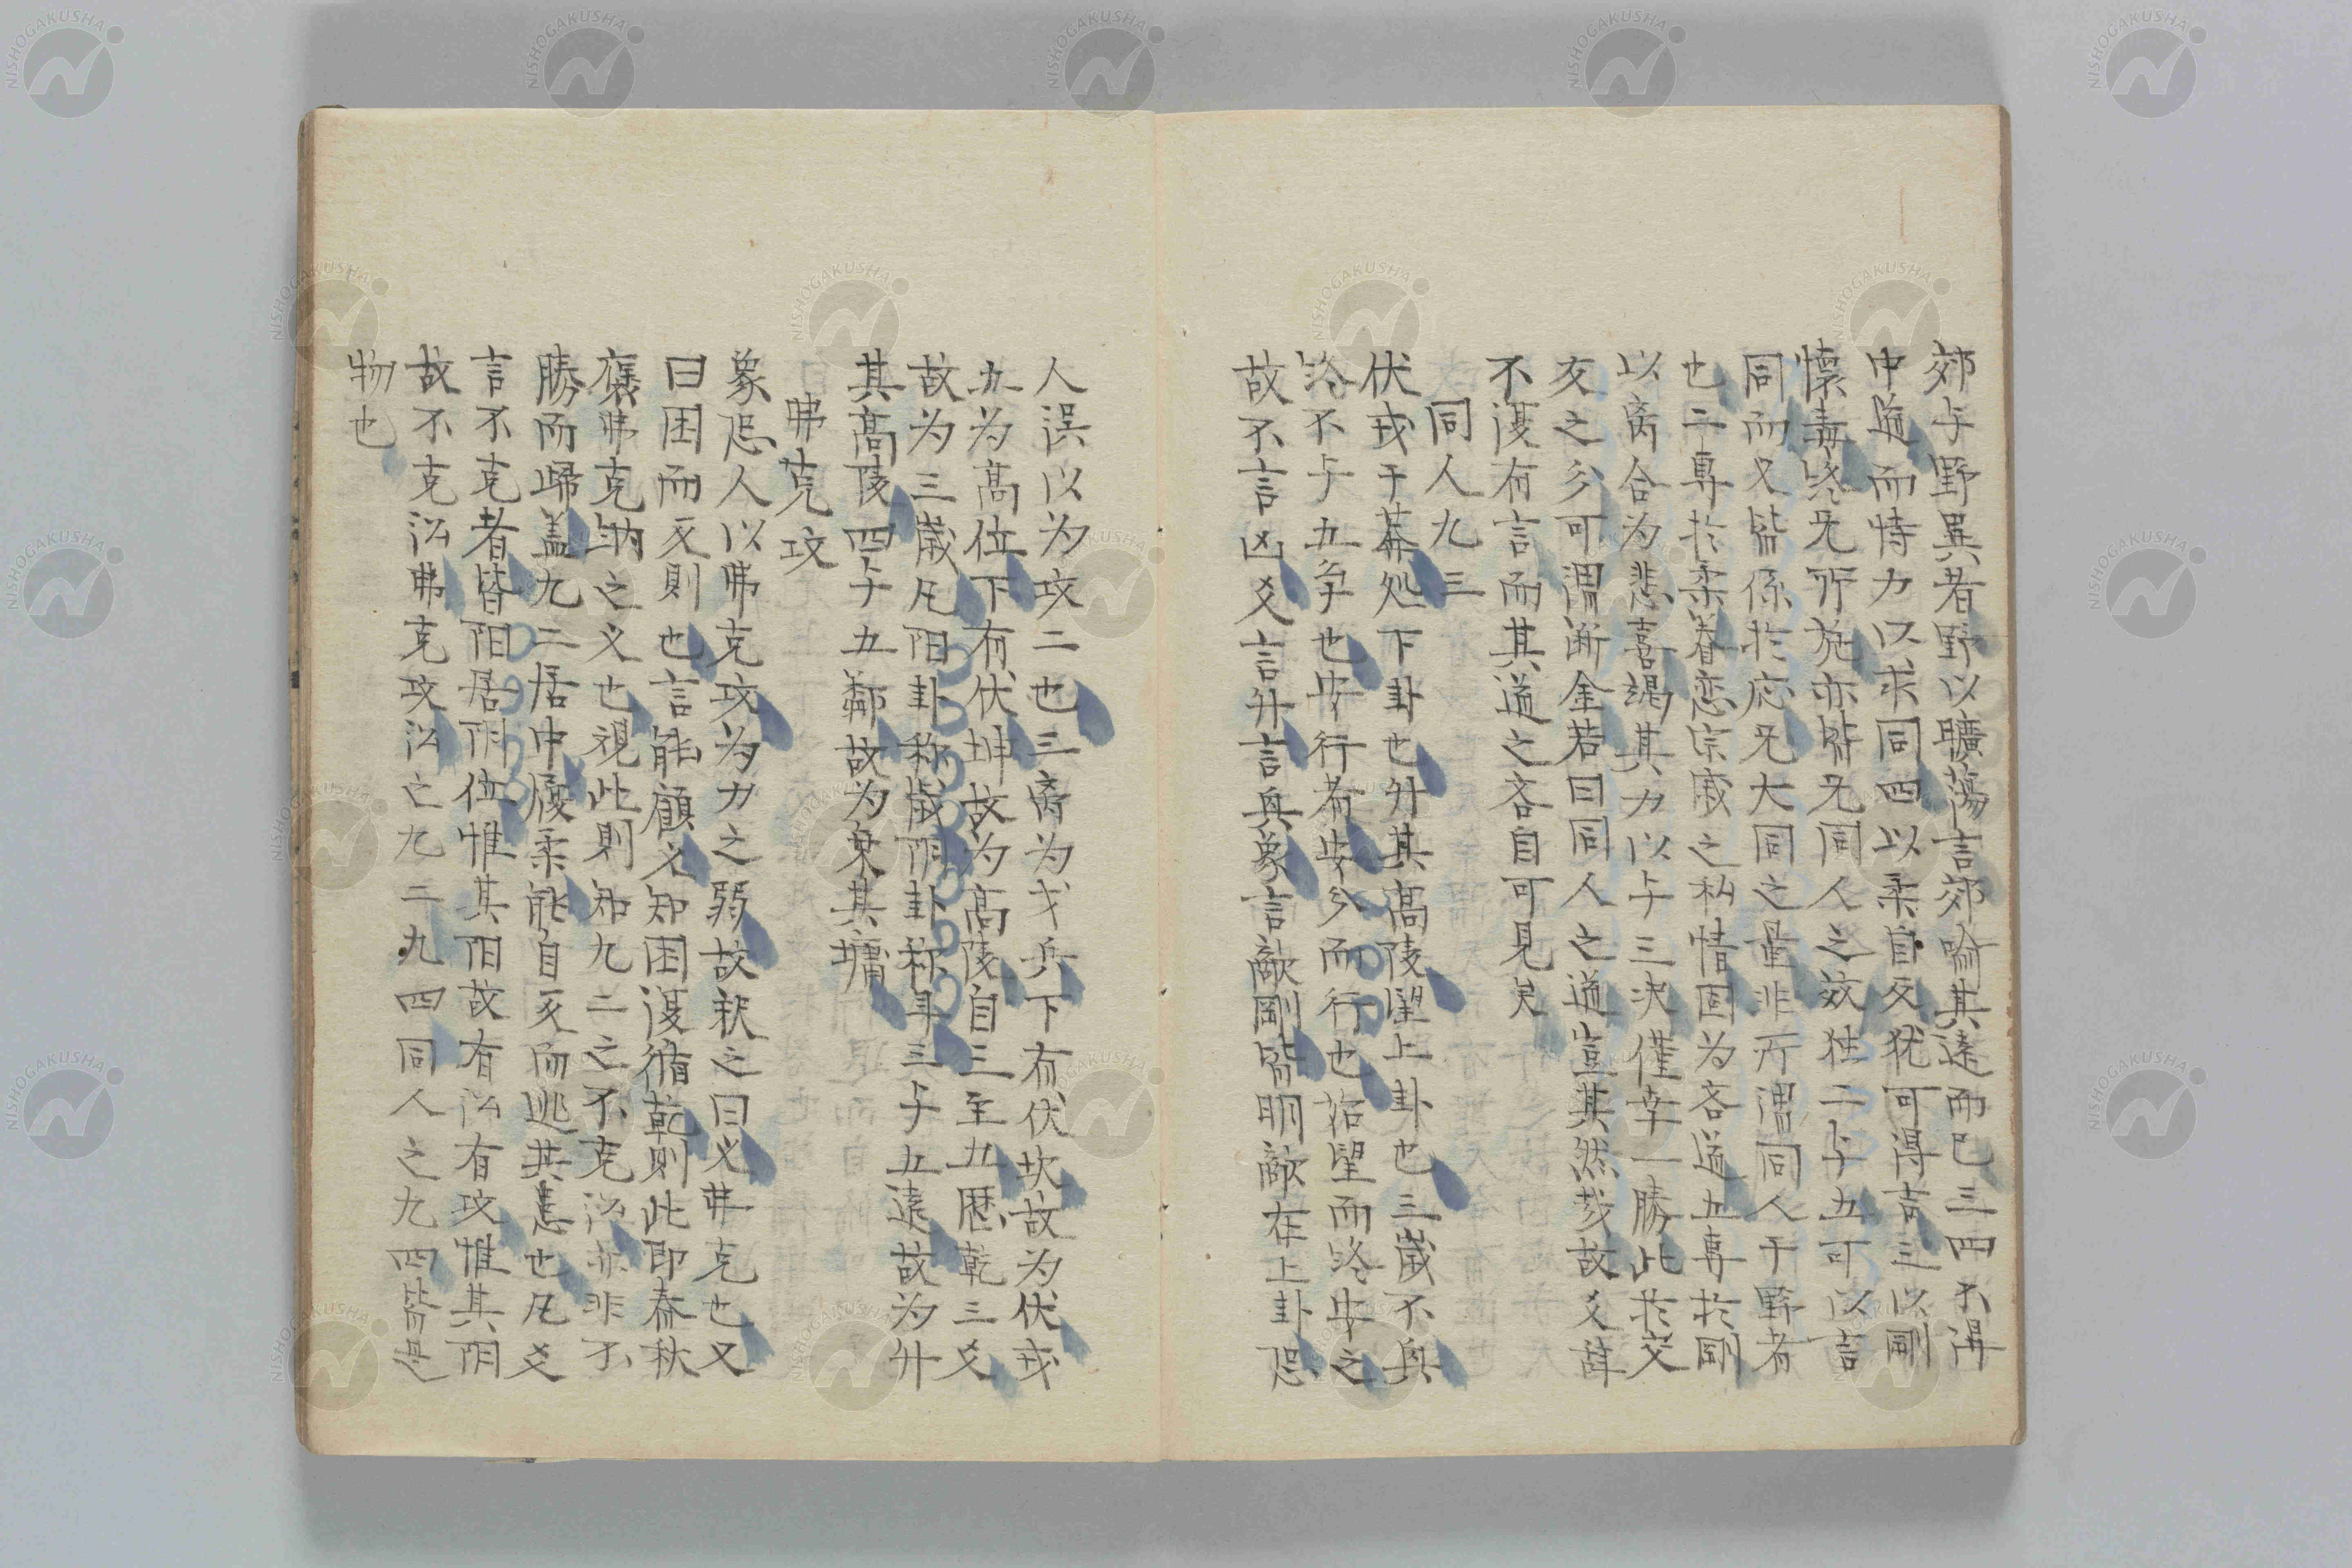 郊与野異者野以曠蕩言郊喻其遠而已三四不得
中道而恃力以求同四以柔自反犹可得吉三以剛
懐毒終无所施亦皆无同人之效独二与五可以言
同而又皆係於応无大同之量非所謂同人于野者
也二専於柔眷恋宗戚之私情固为吝道五専於剛
以离合为悲喜竭其力以与三决僅幸一勝此於交
友之分可謂断金若曰同人之道豈其然哉故爻辞
不復有言而其道之吝自可見矣
同人九三
伏戎于莽処下卦也升其高陵望上卦也三歳不興
終不与五争也安行者安分而行也始望而終安之
故不言凶爻言升言興象言敵剛皆明敵在上卦恐
人误以为攻二也三离为戈兵下有伏坎故为伏戎
五为高位下有伏坤故为高陵自三至五歴乾三爻
故为三歳凡阳卦称歳阴卦称年三与五遠故为升
其高陵四与五鄰故为乗其墉
弗克攻
象恐人以弗克攻为力之弱故釈之曰义弗克也又
曰困而反則也言能顧义知困復循乾则此即春秋
褒弗克納之义也視此則知九二之不克讼亦非不
勝而歸盖九二居中履柔能自反而逃其恚也凡爻
言不克者皆阳居阴位惟其阳故有讼有攻惟其阴
故不克讼弗克攻讼之九二九四同人之九四皆是
物也
NISHOGAKUSHA